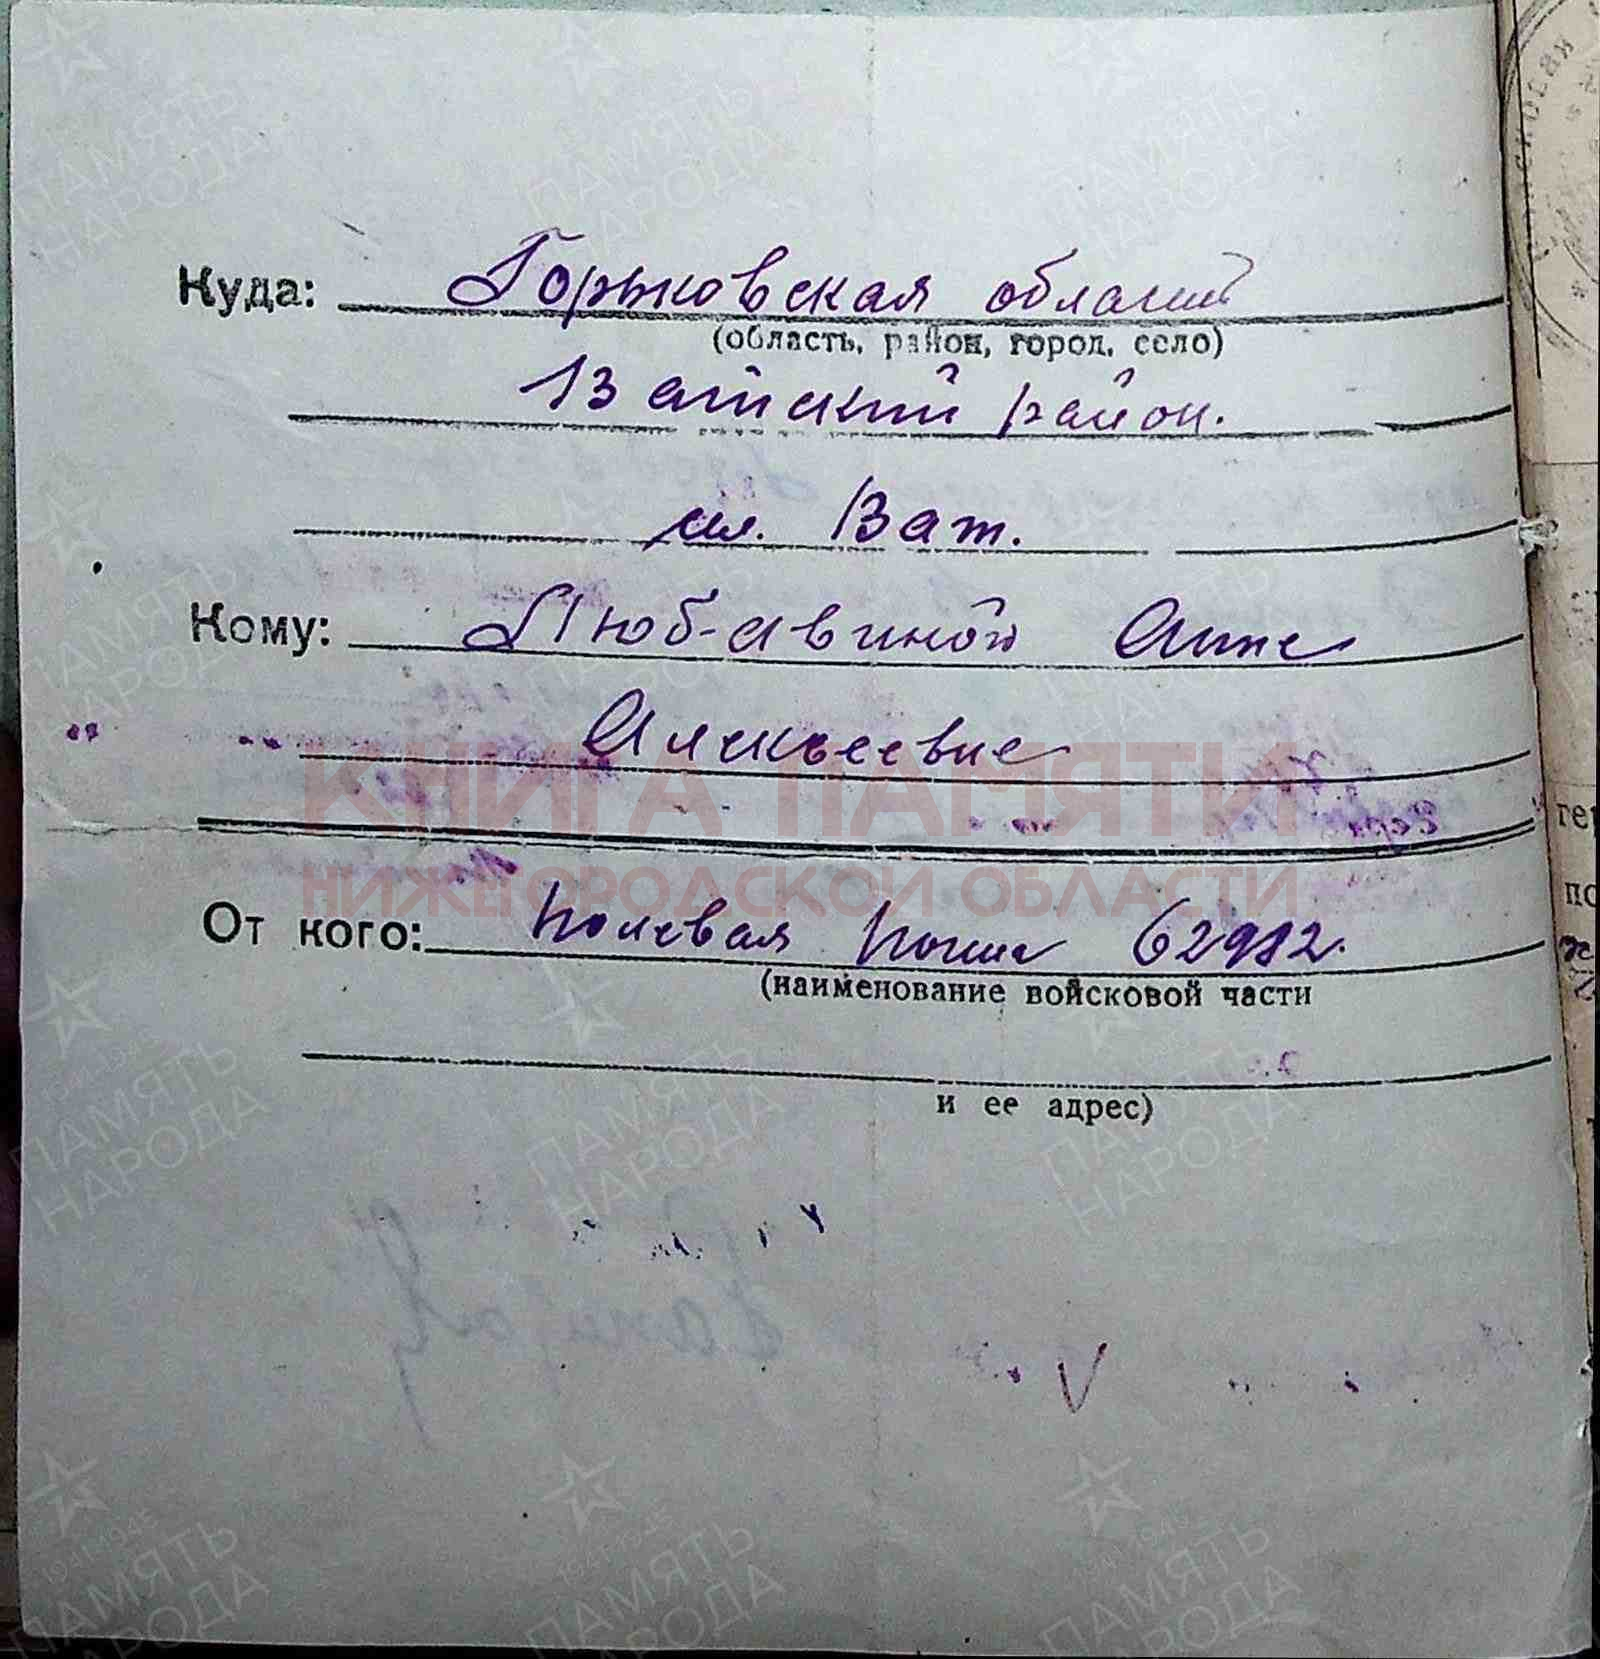 Куда: Горьковская область
(область, район, город, село)
Вачский район.
Ват.
Кому: Любавиной Анне
Алексеевне
КНИГА ПАМЯТИ
НИЖЕГОРОДСКОЙ ОБЛАСТИ
От кого: Полевая Почта 62982.
(наименование войсковой части
и ее адрес)
ПАМЯТЬ
НАРОДА
1941-1945